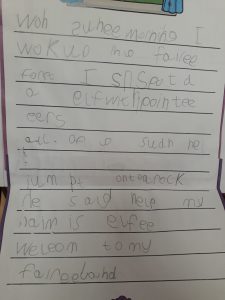 Woh suhee mornho I
wokup ine fairee
forst I SPSpot d
a elfwithpointee
eers
all. of u sudn he
jump t ontea rock
he said help my
naim is elfee
welcom to my
faireelaind